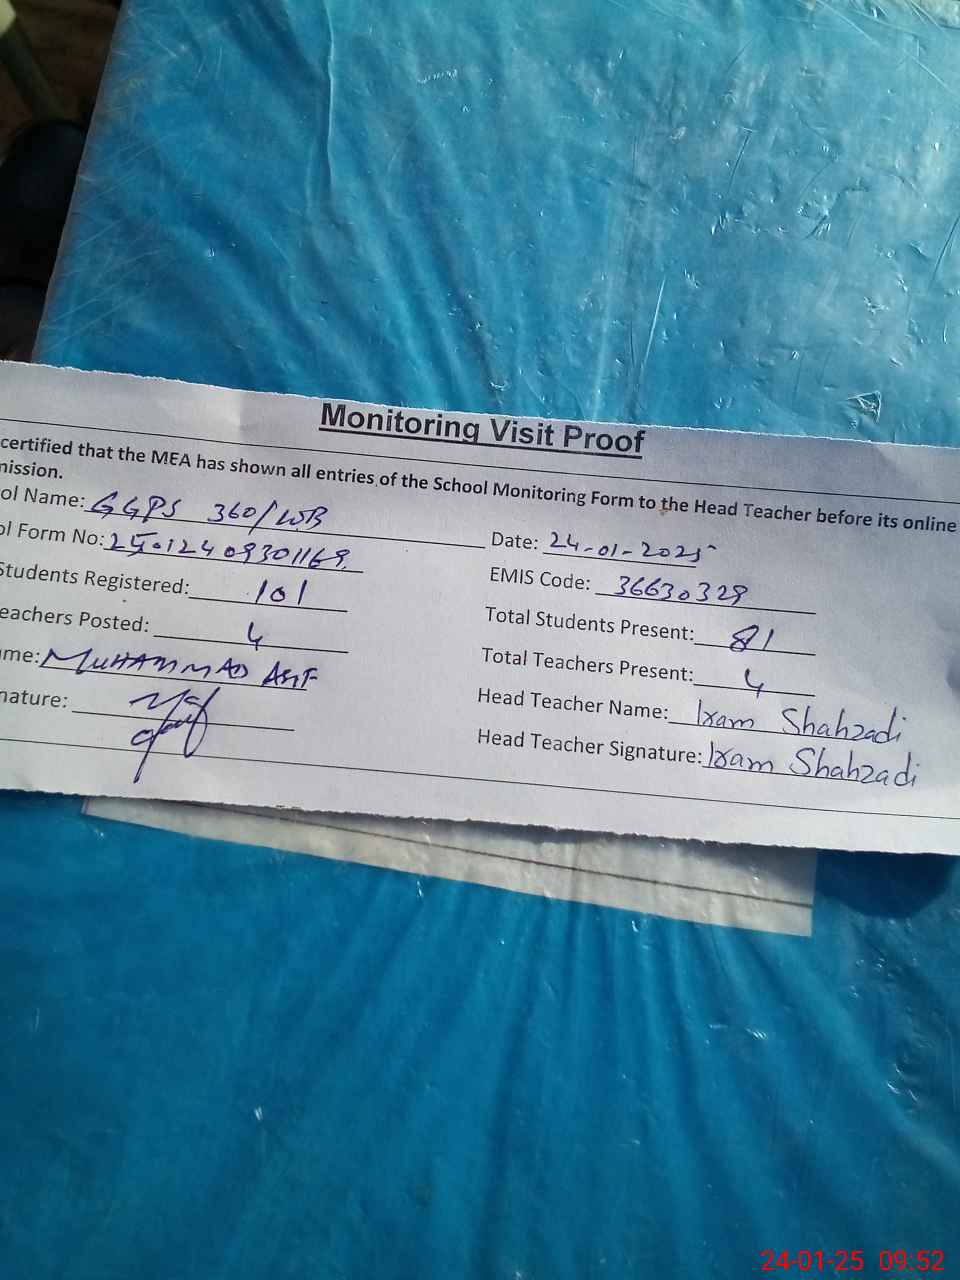 Monitoring Visit Proof
certified that the MEA has shown all entries of the School Monitoring Form to the Head Teacher before its online
mission.
ol Name: GGPS 360/WB
Date: 24-01-2025
ol Form No: 25012409301169
EMIS Code: 36630329
Students Registered: 101
Total Students Present: 81
eachers Posted: 4
Total Teachers Present: 4
me: MUHAMMAD ASIF
Head Teacher Name: Iram Shahzadi
nature:
Head Teacher Signature: Iram Shahzadi
24-01-25 09:52